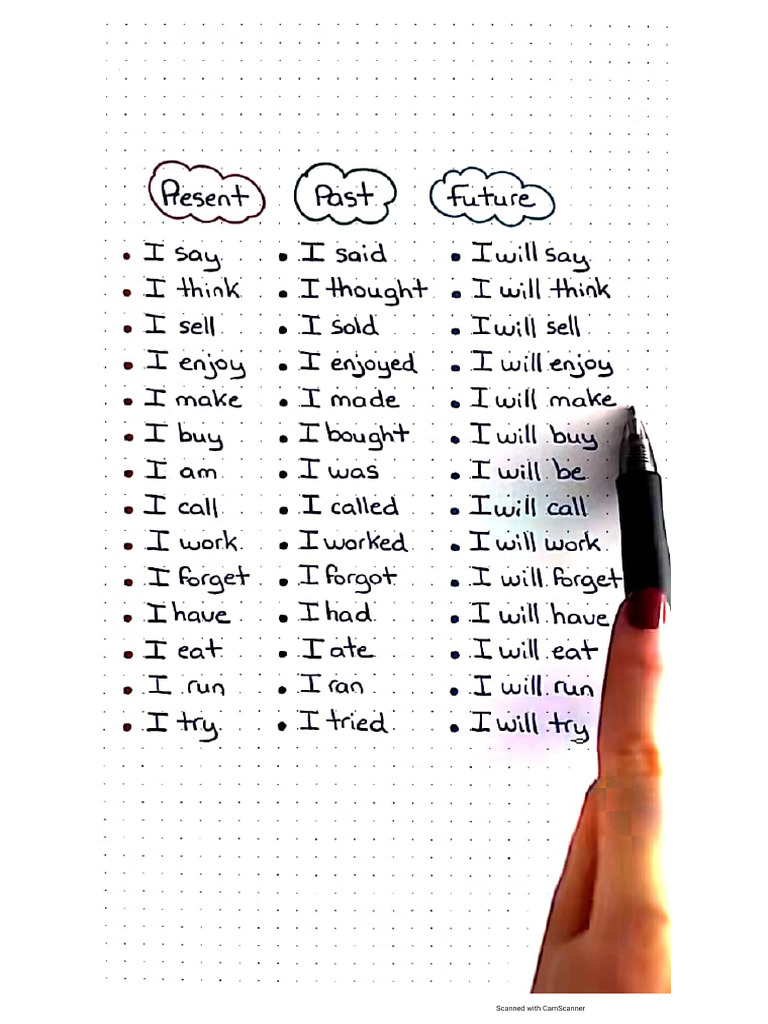 Present Past Future
• I say • I said • I will say
• I think • I thought • I will think
• I sell • I sold • I will sell
• I enjoy • I enjoyed • I will enjoy
• I make • I made • I will make
• I buy • I bought • I will buy
• I am • I was • I will be
• I call • I called • I will call
• I work • I worked • I will work
• I forget • I forgot • I will forget
• I have • I had • I will have
• I eat • I ate • I will eat
• I run • I ran • I will run
• I try • I tried • I will try
Scanned with CamScanner